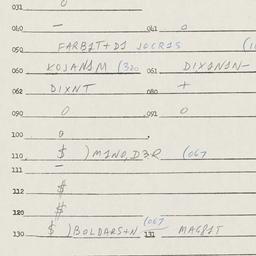 031 0
040 — 041 0
050 FARB1T+D1 JOCR1S (1
060 KOJAN1M (320 061 D1XAN1N-
062 D1XNT 080 +
090 0 091 0
100 0
110 $ )M1NO,D3R (067
111 —
112 $
120 $
130 $ )BOLDARS+N (067 131 MAG81T